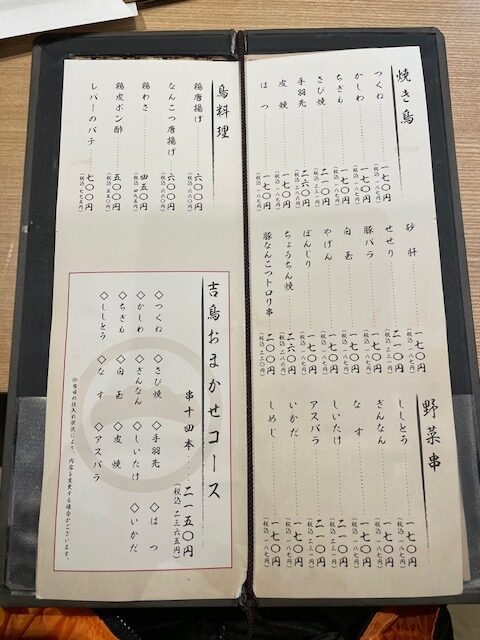 焼き鳥
つくね 一七〇円 (税込 一八七円)
かしわ 一七〇円 (税込 一八七円)
ちぎも 一七〇円 (税込 一八七円)
さび焼 二一〇円 (税込 二三一円)
手羽先 二六〇円
皮焼 一七〇円 (税込 一八七円)
はつ 一七〇円 (税込 一八七円)
砂肝 一七〇円 (税込 一八七円)
せせり 二一〇円 (税込 二三一円)
豚バラ 一七〇円 (税込 一八七円)
白玉 一七〇円 (税込 一八七円)
やげん 一七〇円 (税込 一八七円)
ぼんじり 一七〇円 (税込 一八七円)
ちょうちん焼 二六〇円
豚なんこつトロリ串 二〇〇円 (税込 二二〇円)
野菜串
ししとう 一七〇円 (税込 一八七円)
ぎんなん 一七〇円 (税込 一八七円)
なす 一七〇円 (税込 一八七円)
しいたけ 二一〇円 (税込 二三一円)
アスパラ 二一〇円 (税込 二三一円)
いかだ 一七〇円 (税込 一八七円)
しめじ 一七〇円 (税込 一八七円)
鳥料理
鶏唐揚げ 六〇〇円 (税込 六六〇円)
なんこつ唐揚げ 六〇〇円 (税込 六六〇円)
鶏わさ 四五〇円 (税込 四九五円)
鶏皮ポン酢 五〇〇円 (税込 五五〇円)
レバーのパテ 七〇〇円 (税込 七七〇円)
吉鳥おまかせコース
串十四本 二一五〇円
(税込 二三六五円)
◇つくね ◇さび焼 ◇手羽先 ◇はつ
◇かしわ ◇ぎんなん ◇しいたけ ◇いかだ
◇ちぎも ◇白玉 ◇皮焼
◇ししとう ◇なす ◇アスパラ
※当日の仕入れ状況により、内容を変更する場合がございます。